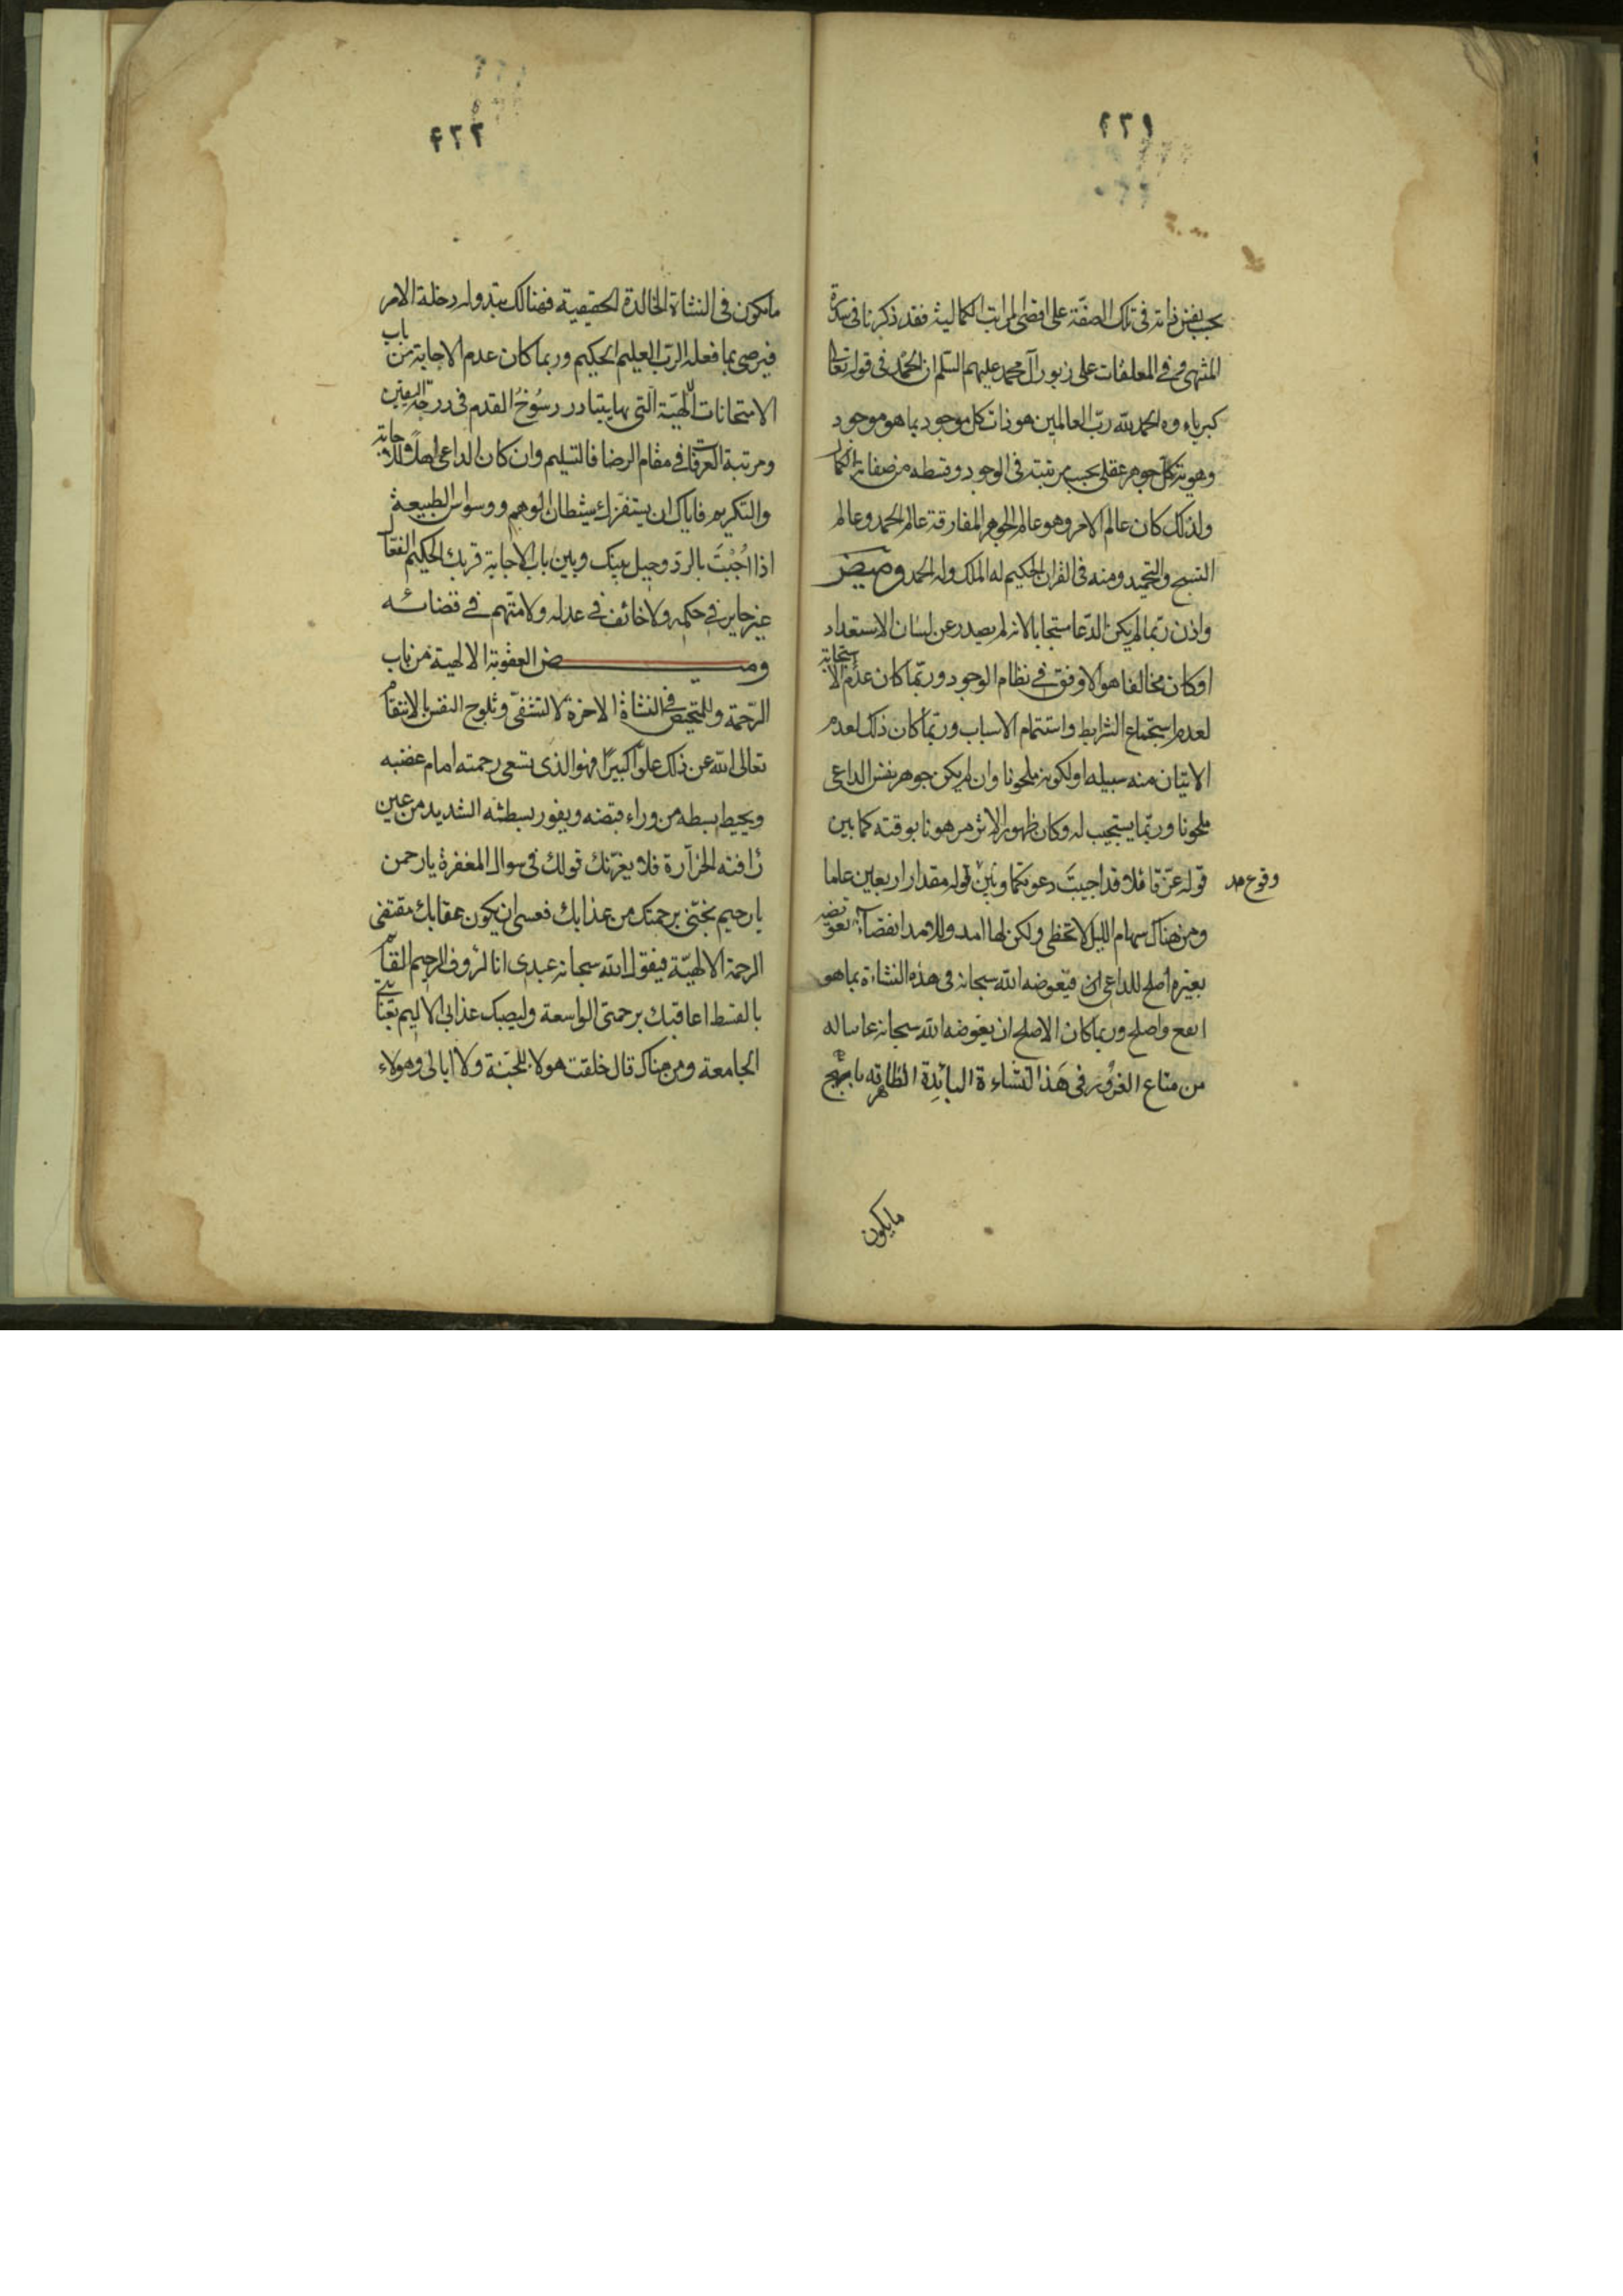 ۶۳۱
بحسب نفس ذاته فى تلك الصفة على اقصى المراتب الكمالية فقد ذكرنا فى سدرة
المنتهى وفى المعلقات على زبور آل محمد عليهم السلم ان الحمد فى قوله تعالى
كبرياءه والحمد لله رب العالمين هو ذات كل موجود بما هو موجود
وهوية كل جوهر عقلى بحسب مرتبته فى الوجود وقسطه من صفات الكمال
ولذلك كان عالم الامر وهو عالم الجواهر المفارقة عالم الحمد وعالم
التسبيح والتحميد ومنه فى القران الحكيم له الملك وله الحمد وميض
واذن ربما لم يكن الدعا مستجابا لانه لم يصدر عن لسان الاستعداد
او كان مخالفا هو الاوفق فى نظام الوجود وربما كان عدم الاستجابة
لعدم استجماع الشرايط واستتمام الاسباب وربما كان ذلك لعدم
الاتيان منه سبيله او لكونه ملحونا وان لم يكن جوهر نفس الداعى
ملحونا وربما يستجيب له وكان ظهور الاثر مرهونا بوقته كما بين
قوله عز قائلا قد اجيبت دعوتكما وبين قوله مقدار اربعين عاما
وقوع مد
ومن هناك سهام الليل لا تخطى ولكن لها امد وللامد انقضاء تعويضه
بغيره اصلح للداعى اذن فيعوضه الله سبحانه فى هذه النشاءة بما هو
انفع واصلح وربما كان الاصلح ان يعوضه الله سبحانه عما ساله
من متاع الغرور فى هذا النشاءة البائدة الظاهرة بابهج
مايكون
۶۳۲
مايكون فى النشاة الخالدة الحقيقية فهنالك يتبدوله دخلة الامر
فيرضى بما فعله الرب العليم الحكيم وربما كان عدم الاجابة من باب
الامتحانات الالهية التى بها يتبادر رسوخ القدم فى درجة اليقين
ومرتبة العرفان فى مقام الرضا فالتسليم وان كان الداعى اهلا للاجابة
والتكريم فاياك ان يستفزك شيطان الوهم ووسواس الطبيعة
اذا اجبت بالرد وحيل بينك وبين باب الاجابة فربك الحكيم الفعال
غير جاير فى حكمه ولا خائف فى عدله ولا متهم فى قضائه
وميض العقوبة الالهية من باب
الرحمة وللتمحيص فى النشاة الاخرة لا لتشفى وثلوج النفس بالانتقام
تعالى الله عن ذلك علوا كبيرا فهو الذى تسعى رحمته امام غضبه
ويحيط بسطه من وراء قبضه ويفور بطشه الشديد من عين
رافته الخرآرة فلا يغرنك قولك فى سوال المغفرة يا رحمن
يا رحيم نجنى برحمتك من عذابك فعسى ان يكون عقابك مقتضى
الرحمة الالهية فيقول الله سبحانه عبدى انا الرؤف الرحيم القائم
بالقسط اعاقبك برحمتى الواسعة وليصبك عذابى الاليم بعنايتى
الجامعة ومن هناك قال خلقت هولاء للجنة ولا ابالى وهولاء